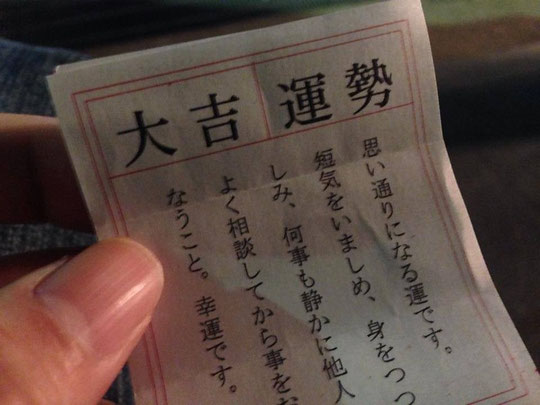 大吉 運勢
思い通りになる運です。
短気をいましめ、身をつつ
しみ、何事も静かに他人
よく相談してから事をお
なうこと。幸運です。